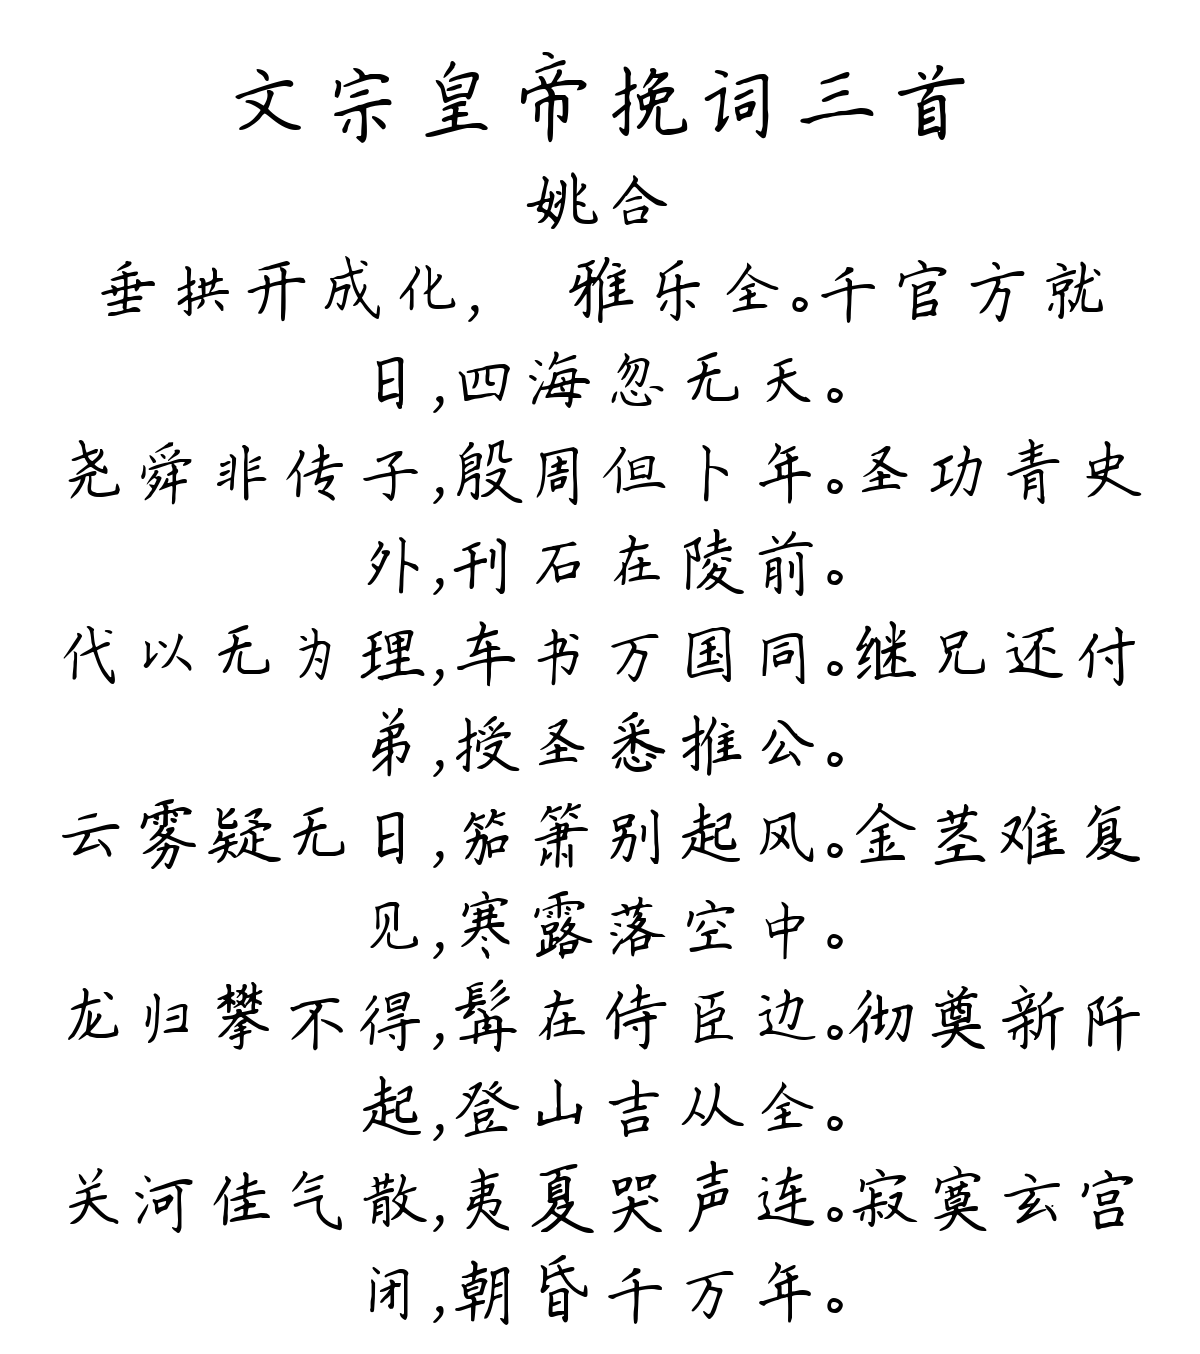 文宗皇帝挽词三首
姚合
垂拱开成化, 雅乐全。千官方就
日,四海忽无天。
尧舜非传子,殷周但卜年。圣功青史
外,刊石在陵前。
代以无为理,车书万国同。继兄还付
弟,授圣悉推公。
云雾疑无日,笳箫别起风。金茎难复
见,寒露落空中。
龙归攀不得,髯在侍臣边。彻奠新阡
起,登山吉从全。
关河佳气散,夷夏哭声连。寂寞玄宫
闭,朝昏千万年。